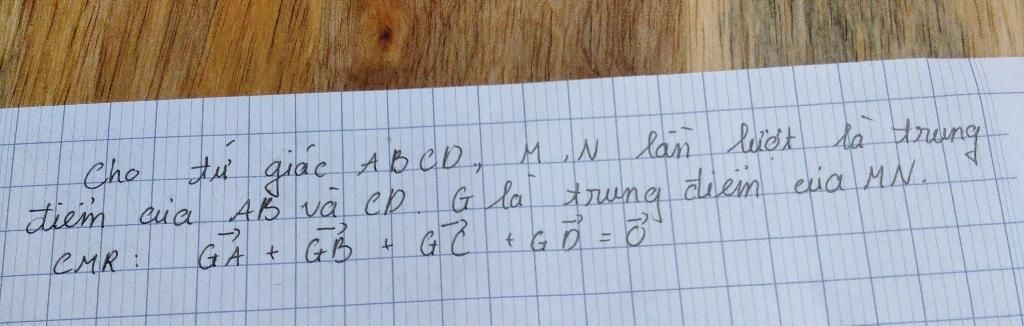 Cho tứ giác ABCD, M, N lần lượt là trung
điểm của AB và CD. G là trung điểm của MN.
CMR: GA→ + GB→ + GC→ + GD→ = 0→